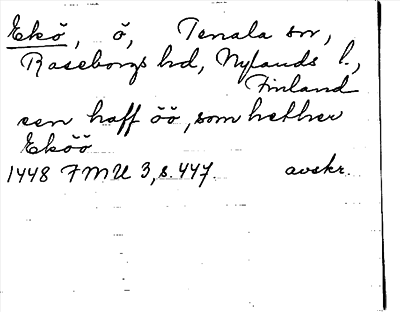 Ekö, ö, Tenala sn,
Raseborgs hd, Nylands l.,
Finland
een haff öö, som hether
Eköö
1448 FMU 3, s. 447. avskr.